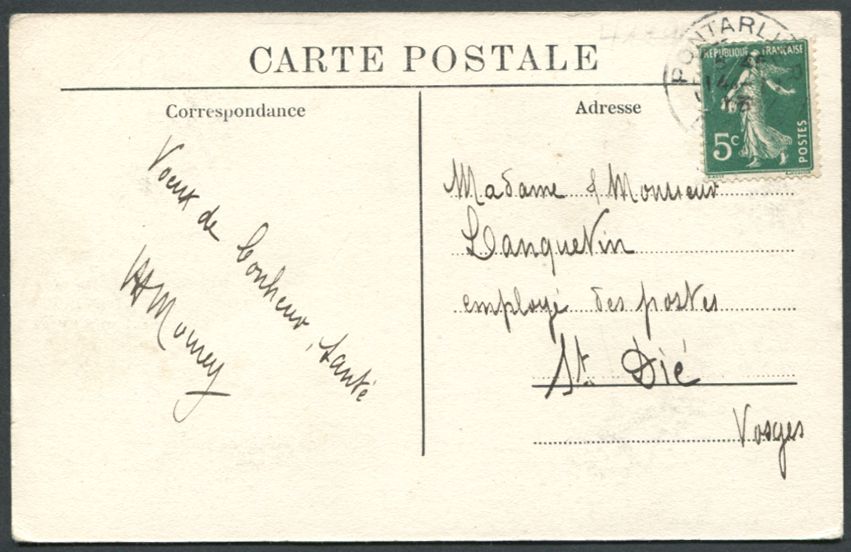 CARTE POSTALE
PONTARLI
REPUBLIQUE FRANÇAISE
5c
POSTES
Correspondance
Adresse
Voeux de bonheur, santé
Madame & Monsieur
Lanquetin
employé des postes
St. Dié
Vosges